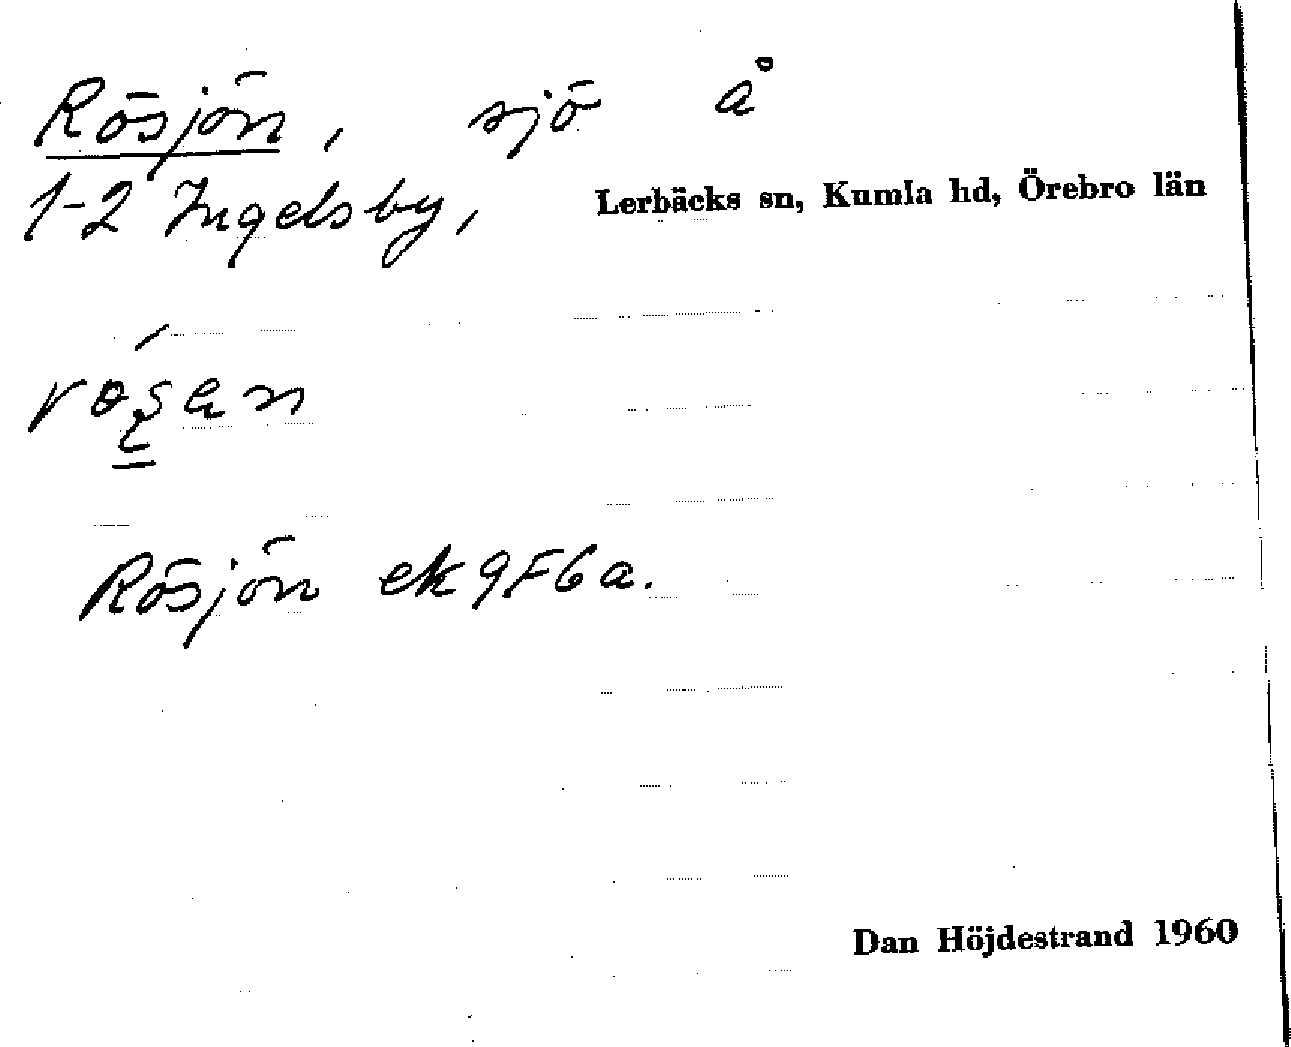 Rösjön, sjö å
1-2 Ingelsby, Lerbäcks sn, Kumla hd, Örebro län
Rösjön ek 9F6a.
Dan Höjdestrand 1960